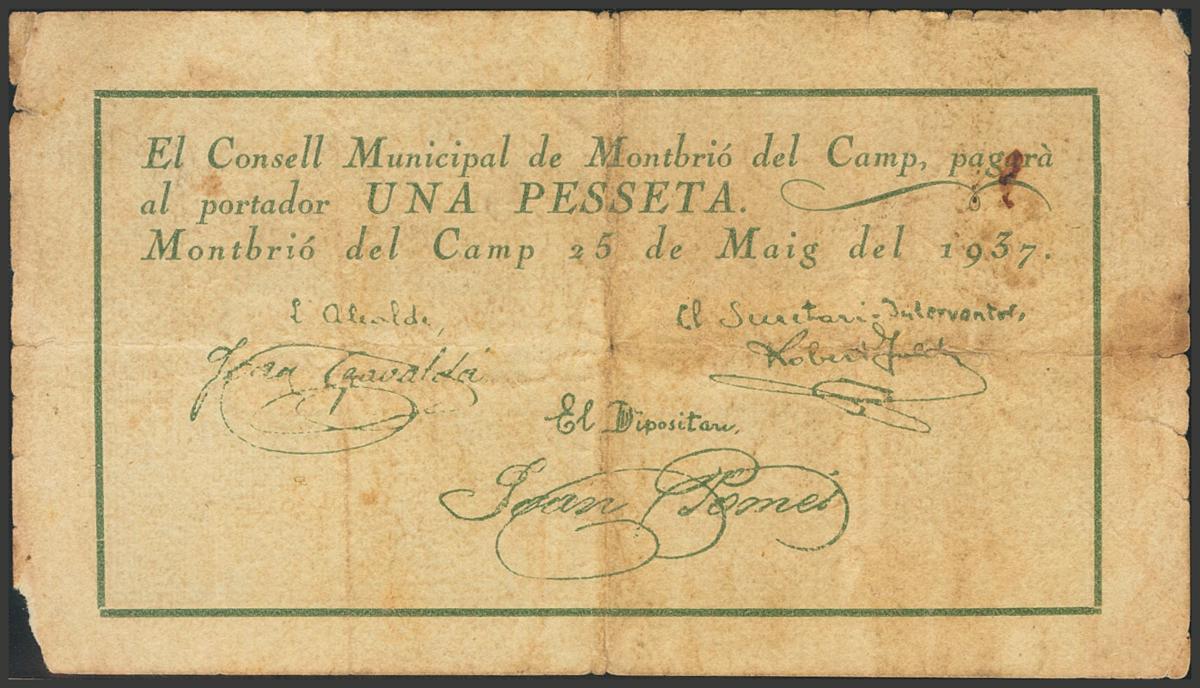 El Consell Municipal de Montbrió del Camp, pagarà
al portador UNA PESSETA.
Montbrió del Camp 25 de Maig del 1937.
L'Alcalde,
El Secretari-Interventor,
Joan Gavaldá
Robert
El Dipositari,
Joan Pomés